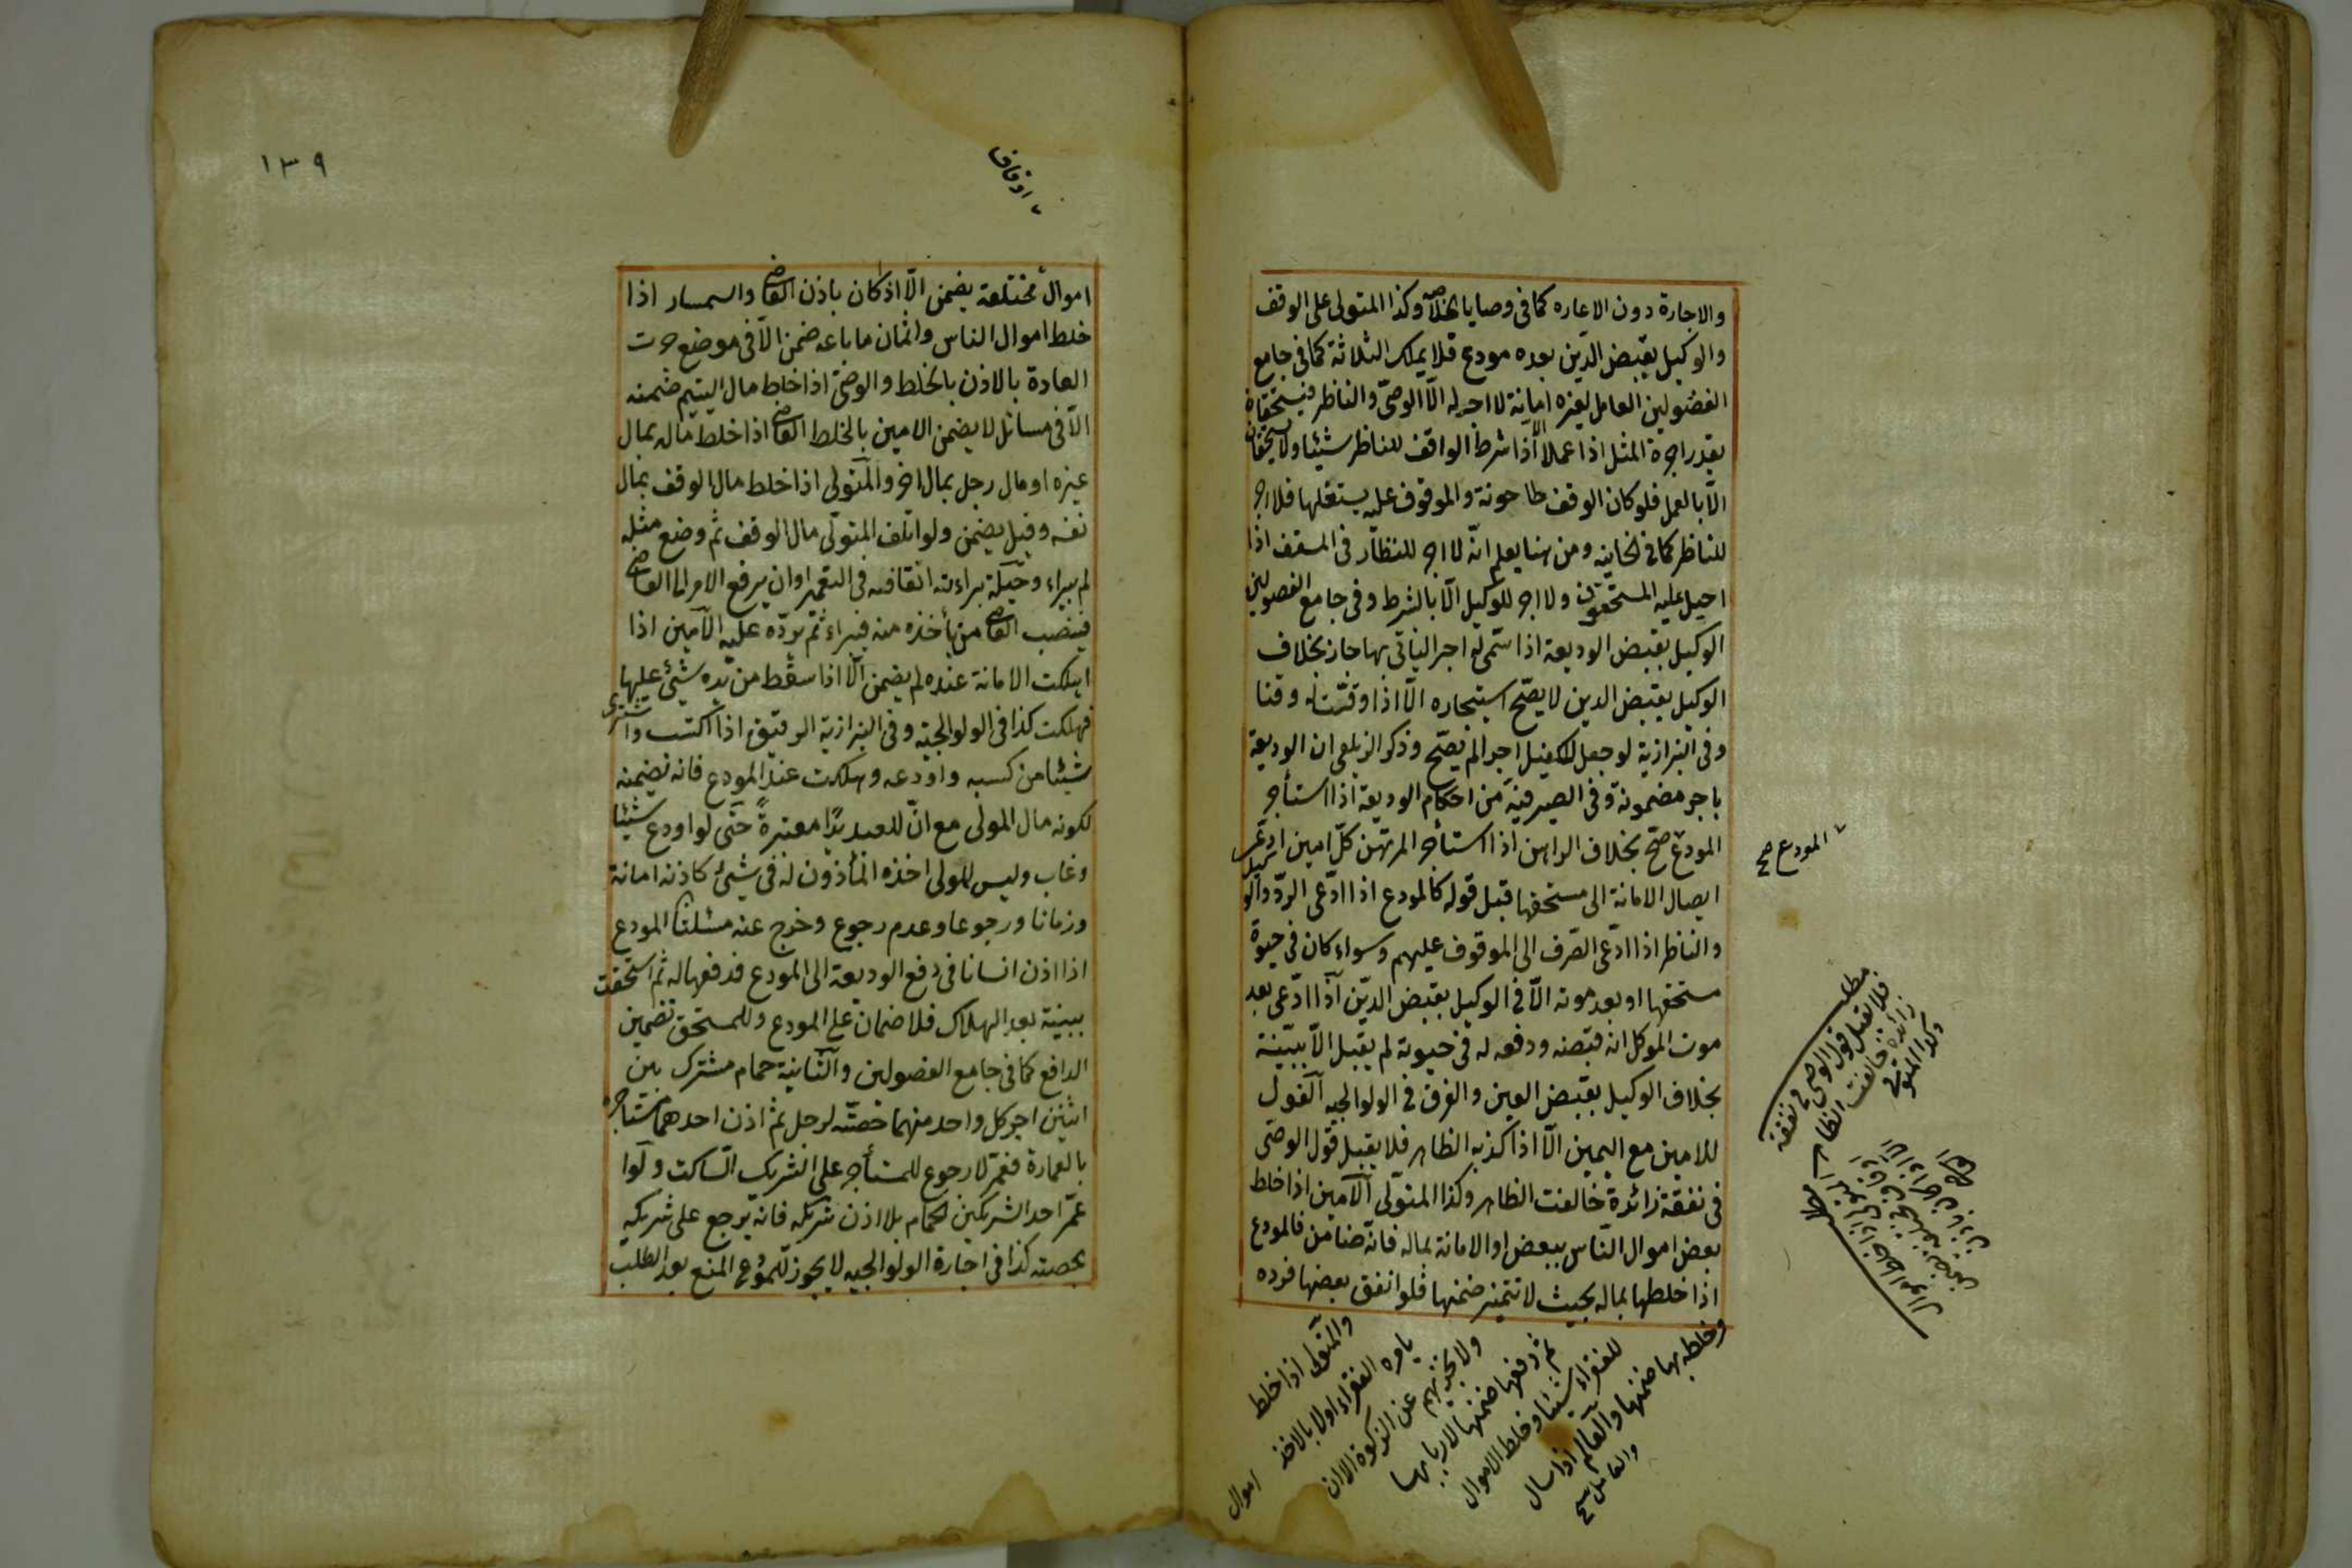 والاجارة دون الاعاره كما فى وصايا الخلاصة وكذا المتولى على الوقف
والوكيل بقبض الدّين بعده مودع فلا يملك الثلاثة كما فى جامع
الفصولين العامل لغيره امانة لا اجر له الّا الوصىّ والناظر فيستحقان
بقدر اجرة المثل اذا عملا الّا اذا شرط الواقف للناظر شيئا ولا يستحقان
الّا بالعمل فلو كان الوقف طاحونة والموقوف عليه يستغلها فلا اجر
للناظر كما فى الخانيه ومن هنا يعلم انّه لا اجر للنظّار فى المسقف اذا
احيل عليه المستحقون ولا اجر للوكيل الّا بالشرط وفى جامع الفصولين
الوكيل بقبض الوديعة اذا سمّى له اجر الياتى بها جاز بخلاف
الوكيل بقبض الدين لا يصّح استيجاره الّا اذا وقّت له وقتا
وفى البزازية لو جعل للكفيل اجرا لم يصّح وذكر الزيلعى ان الوديعة
باجر مضمونة وفى الصيرفيّة من احكام الوديعة اذا استأجر
المودع صحّ بخلاف الراهن اذا استأجر المرتهن كلّ امين ادّعى
ايصال الامانة الى مستحقها قبل قوله كالمودع اذا ادّعى الردّ والوكيل
والناظر اذا ادّعى الصّرف الى الموقوف عليهم وسواء كان فى حيوة
مستحقها او بعد موته الّا فى الوكيل بقبض الديّن اذا ادّعى بعد
موت الموكل انه قبضه ودفعه له فى حيوته لم يقبل الّا ببيّنة
بخلاف الوكيل بقبض العين والفرق فى الولوالجيه القول
للامين مع اليمين الّا اذا كذبه الظاهر فلا يقبل قول الوصى
فى نفقة زائدة خالفت الظاهر وكذا المتولّى الامين اذا خلط
بعض اموال النّاس ببعض او الامانة بماله فانّه ضامن فالمودع
اذا خلطها بماله بحيث لا تتميز ضمنها فلو انفق بعضها فرده
وخلطه بها ضمنها والعالم اذا سال
للفقراء شيئا وخلط الاموال
ثم دفعها ضمنها لاربابها
ولا تجزئهم عن الزكوة الا ان
يامره الفقراء اولا بالاخذ
والمتولى اذا خلط
اموال
المودع صح
مطلب
فلا تقبل قول الوصى فى نفقة
زائدة خالفت الظاهر
وكذا المتولى
١٣٩
اوقاف
اموال مختلفة يضمن الّا اذا كان باذن القاضى والسمسار اذا
خلط اموال الناس واثمان ما باعه ضمن الّا فى موضع جرت
العادة بالاذن بالخلط والوصىّ اذا خلط مال اليتيم ضمنه
الّا فى مسائل لا يضمن الامين بالخلط القاضى اذا خلط ماله بمال
غيره او مال رجل بمال اخر والمتولى اذا خلط مال الوقف بمال
نفسه وقيل يضمن ولو اتلف المتولّى مال الوقف ثم وضع مثله
لم يبراء وحيلة براءته انفاقه فى التعمير او ان يرفع الامر الى القاضى
فينصب القاضى من يأخذه منه فيبراء ثم يردّه عليه الامين اذا
هلكت الامانة عنده لم يضمن الّا اذا سقط من يده شئ عليها
فهلكت كذا فى الولوالجيّه وفى البزازية الرقيق اذا اكتسب واشترى
شيئا من كسبه واودعه وهلكت عند المودع فانه يضمنه
لكونه مال المولى مع انّ للعبد يدًا معتبرةً حتّى لو اودع شيئا
وغاب وليس للمولى اخذه المأذون له فى شئ كاذنه امانة
وزمانا ورجوعا وعدم رجوع وخرج عنه مسئلتا المودع
اذا اذن انسانا فى دفع الوديعة الى المودع فدفعها له ثم استحقت
ببينة بعد الهلاك فلا ضمان على المودع وللمستحق تضمين
الدافع كما فى جامع الفصولين والثانية حمام مشترك بين
اثنين اجر كل واحد منهما حصّته لرجل ثم اذن احدهما مستأجره
بالعمارة فعمّر لا رجوع للمستأجر على الشريك الساكت ولو
عمّر احد الشريكين الحمام بلا اذن شريكه فانّه يرجع على شريكه
بحصته كذا فى اجارة الولوالجيه لا يجوز للمودع المنع بعد الطلب